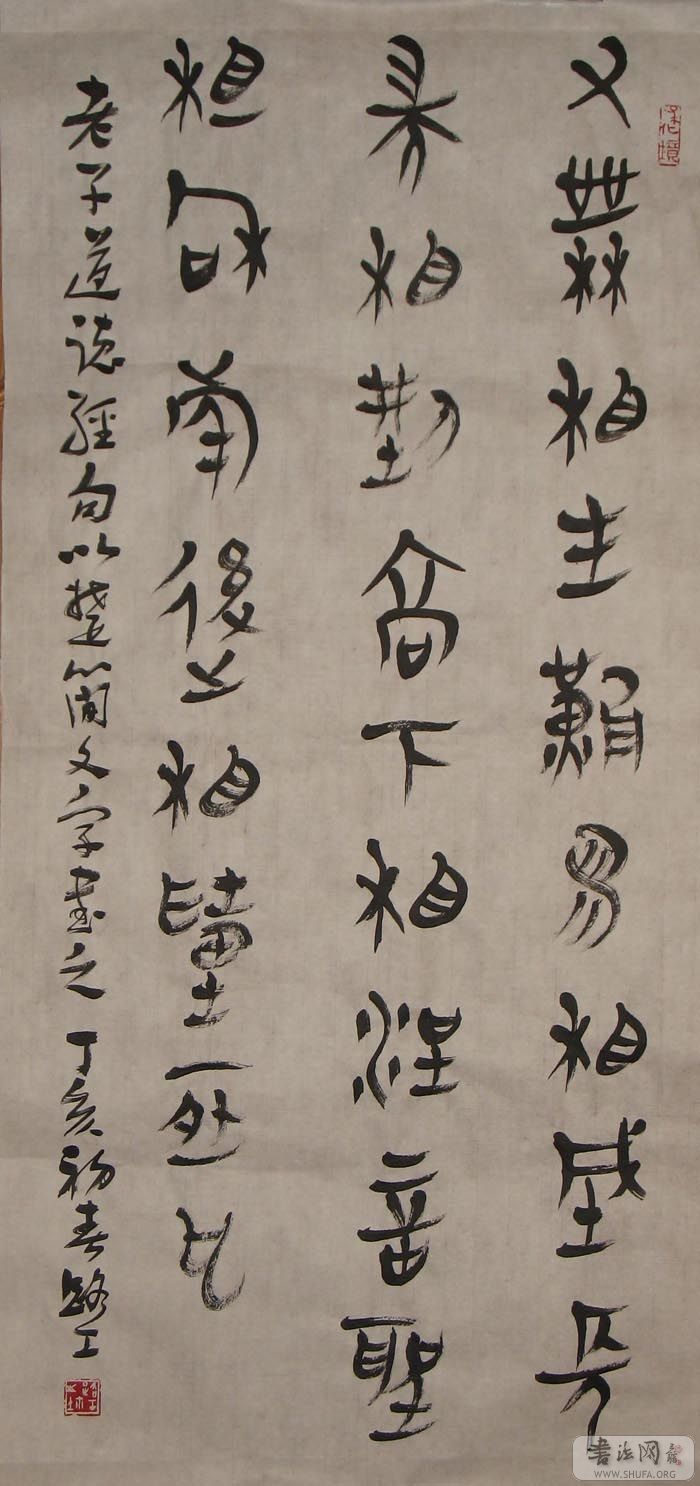 又無相生難易相成長
耑相型高下相浧音聖
相和前後相墮恆也
老子道德經句以楚簡文字書之 丁亥初春 路工
書法网
WWW.SHUFA.ORG